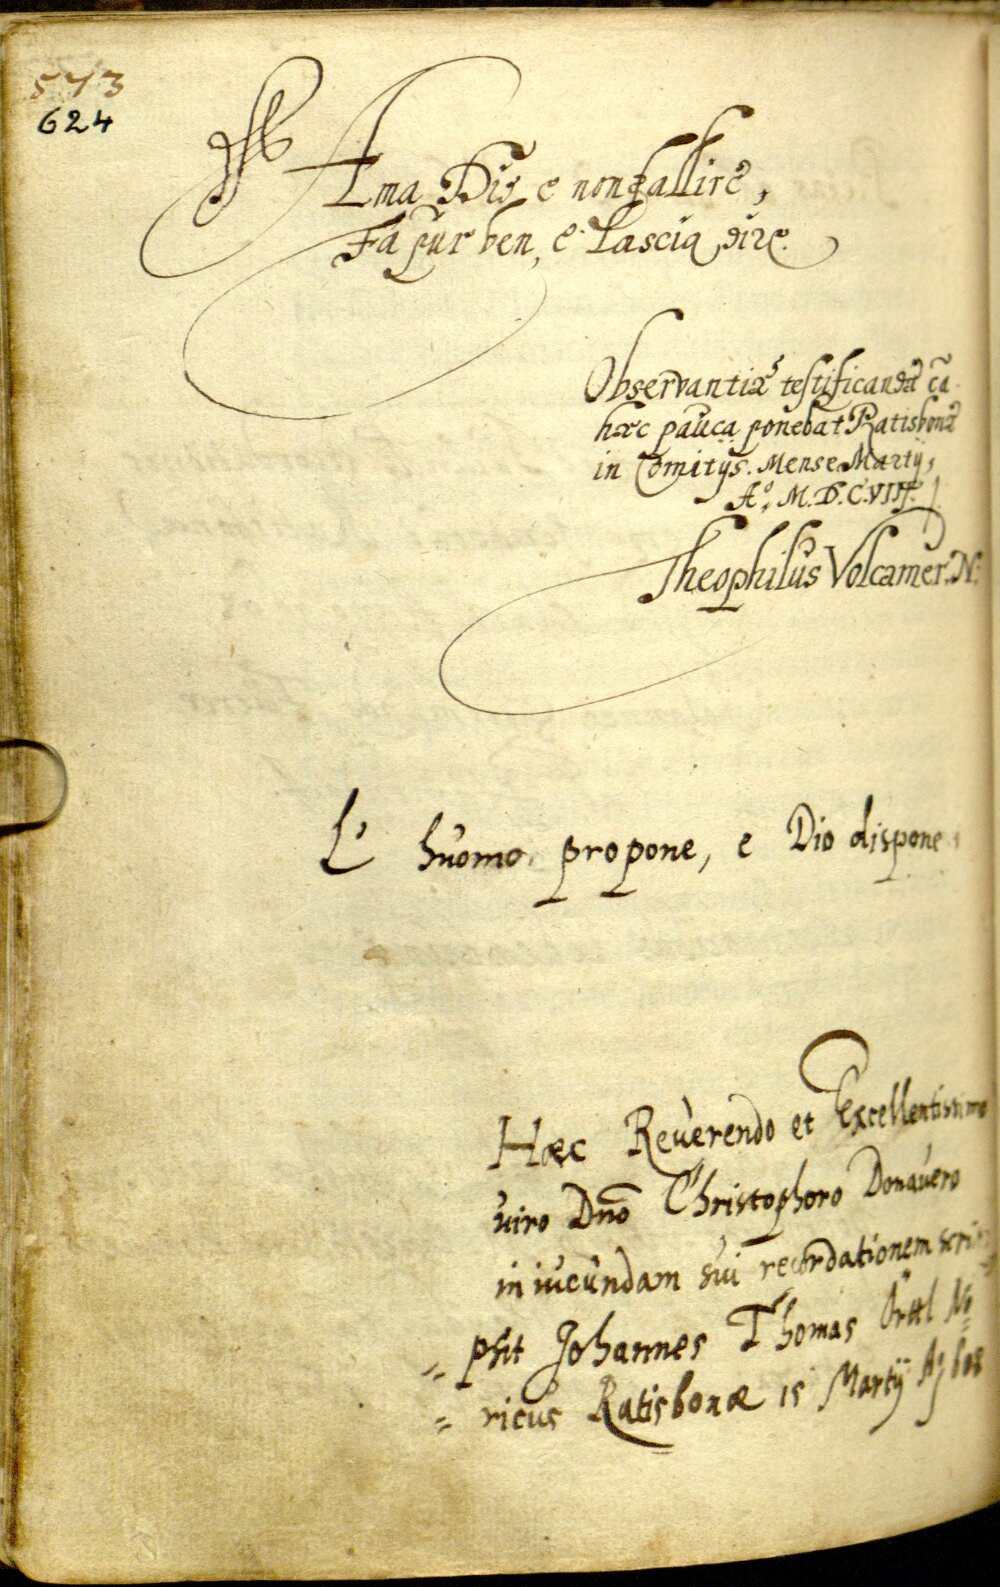 573
624
Ama Dio e non fallire,
Fa pur ben, e lascia dire.
Observantiæ testificandæ cã
hæc pauca ponebat Ratisbonæ
in Comitijs. Mense Martij,
Aº. M.D.C.VIII.
Theophilus Volcamer. N:
L' huomo propone, e Dio dispone
Hæc Reverendo et Excellentissimo
viro Dño Christophoro Donavero
in iucundam sui recordationem scri
= psit Johannes Thomas Örttl No
= ricus Ratisbonæ 15 Martij Aº 608